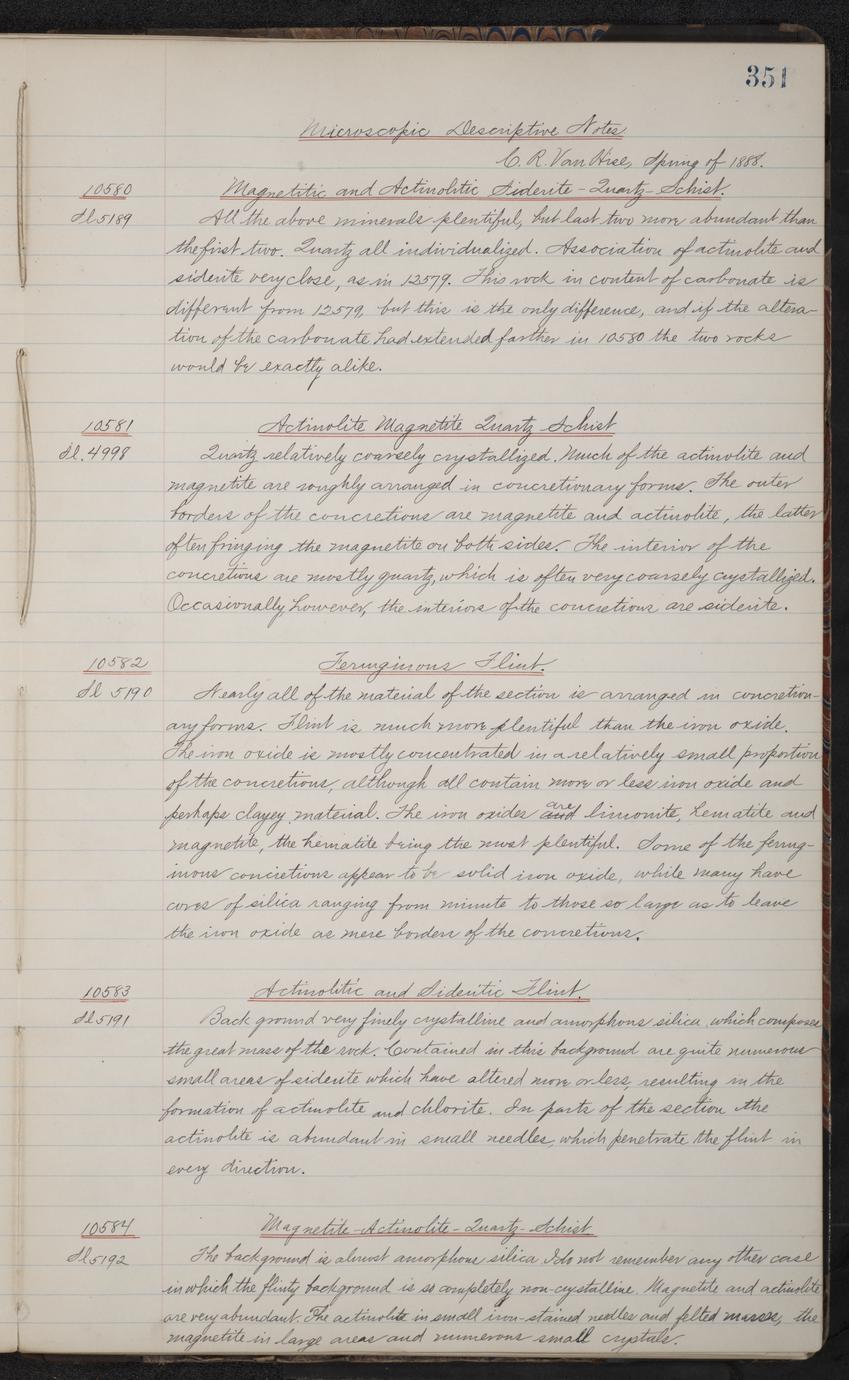 351
Microscopic Descriptive Notes
C. R. Van Hise, Spring of 1888.
10580 Magnetitic and Actinolitic Siderite-Quartz-Schist.
Sl 5189 All the above minerals plentiful, but last two more abundant than
the first two. Quartz all individualized. Association of actinolite and
siderite very close, as in 12579. This rock in content of carbonate is
different from 12579, but this is the only difference, and if the altera-
tion of the carbonate had extended farther in 10580 the two rocks
would be exactly alike.
10581 Actinolite Magnetite Quartz Schist
Sl. 4998 Quartz relatively coarsely crystallized. Much of the actinolite and
magnetite are roughly arranged in concretionary forms. The outer
borders of the concretions are magnetite and actinolite, the latter
often fringing the magnetite on both sides. The interior of the
concretions are mostly quartz, which is often very coarsely crystallized.
Occasionally, however, the interiors of the concretions are siderite.
10582 Ferruginous Flint.
Sl 5190 Nearly all of the material of the section is arranged in concretion-
ary forms. Flint is much more plentiful than the iron oxide.
The iron oxide is mostly concentrated in a relatively small proportion
of the concretions, although all contain more or less iron oxide and
perhaps clayey material. The iron oxides and are limonite, hematite and
magnetite, the hematite being the most plentiful. Some of the ferrug-
inous concretions appear to be solid iron oxide, while many have
cores of silica ranging from minute to those so large as to leave
the iron oxide as mere borders of the concretions.
10583 Actinolitic and Sideritic Flint.
Sl 5191 Back ground very finely crystalline and amorphous silica, which composes
the great mass of the rock. Contained in this background are quite numerous
small areas of siderite which have altered more or less, resulting in the
formation of actinolite and chlorite. In parts of the section the
actinolite is abundant in small needles, which penetrate the flint in
every direction.
10584 Magnetite-Actinolite-Quartz-Schist
Sl 5192 The background is almost amorphous silica. I do not remember any other case
in which the flinty background is so completely non-crystalline. Magnetite and actinolite
are very abundant. The actinolite in small iron-stained needles and felted masses, the
magnetite in large areas and numerous small crystals.